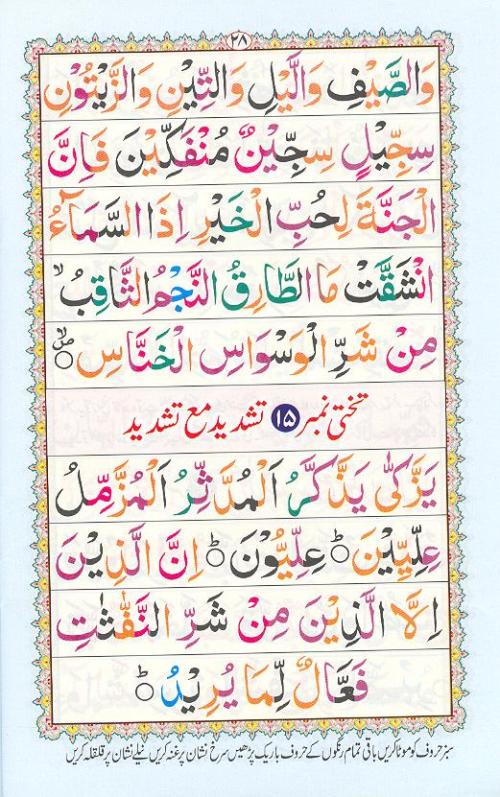 ٢٨
وَالصَّيْفِ وَالَّيْلِ وَالتِّيْنِ وَالزَّيْتُوْنِ
سِجِّيْلٍ سِجِّيْنٌ مُنْفَكِّيْنَ فَاِنَّ
الْجَنَّةَ لِحُبِّ الْخَيْرِ اِذَا السَّمَآءُ
انْشَقَّتْ مَا الطَّارِقُ النَّجْمُ الثَّاقِبُ ۙ
مِنْ شَرِّ الْوَسْوَاسِ الْخَنَّاسِ ۙ۝
تختی نمبر ۱۵ تشدید مع تشدید
يَزَّكّٰى يَذَّكَّرُ اَلْمُدَّثِّرُ اَلْمُزَّمِّلُ
عِلِّيِّيْنَ ۝ؕ عِلِّيُّوْنَ ۝ؕ اِنَّ الَّذِيْنَ
اِلَّا الَّذِيْنَ مِنْ شَرِّ النَّفّٰثٰتِ
فَعَّالٌ لِّمَا يُرِيْدُ ۝ؕ
سبز حروف کو موٹا کریں باقی تمام رنگوں کے حروف باریک پڑھیں سرخ نشان پر غنہ کریں نیلے نشان پر قلقلہ کریں